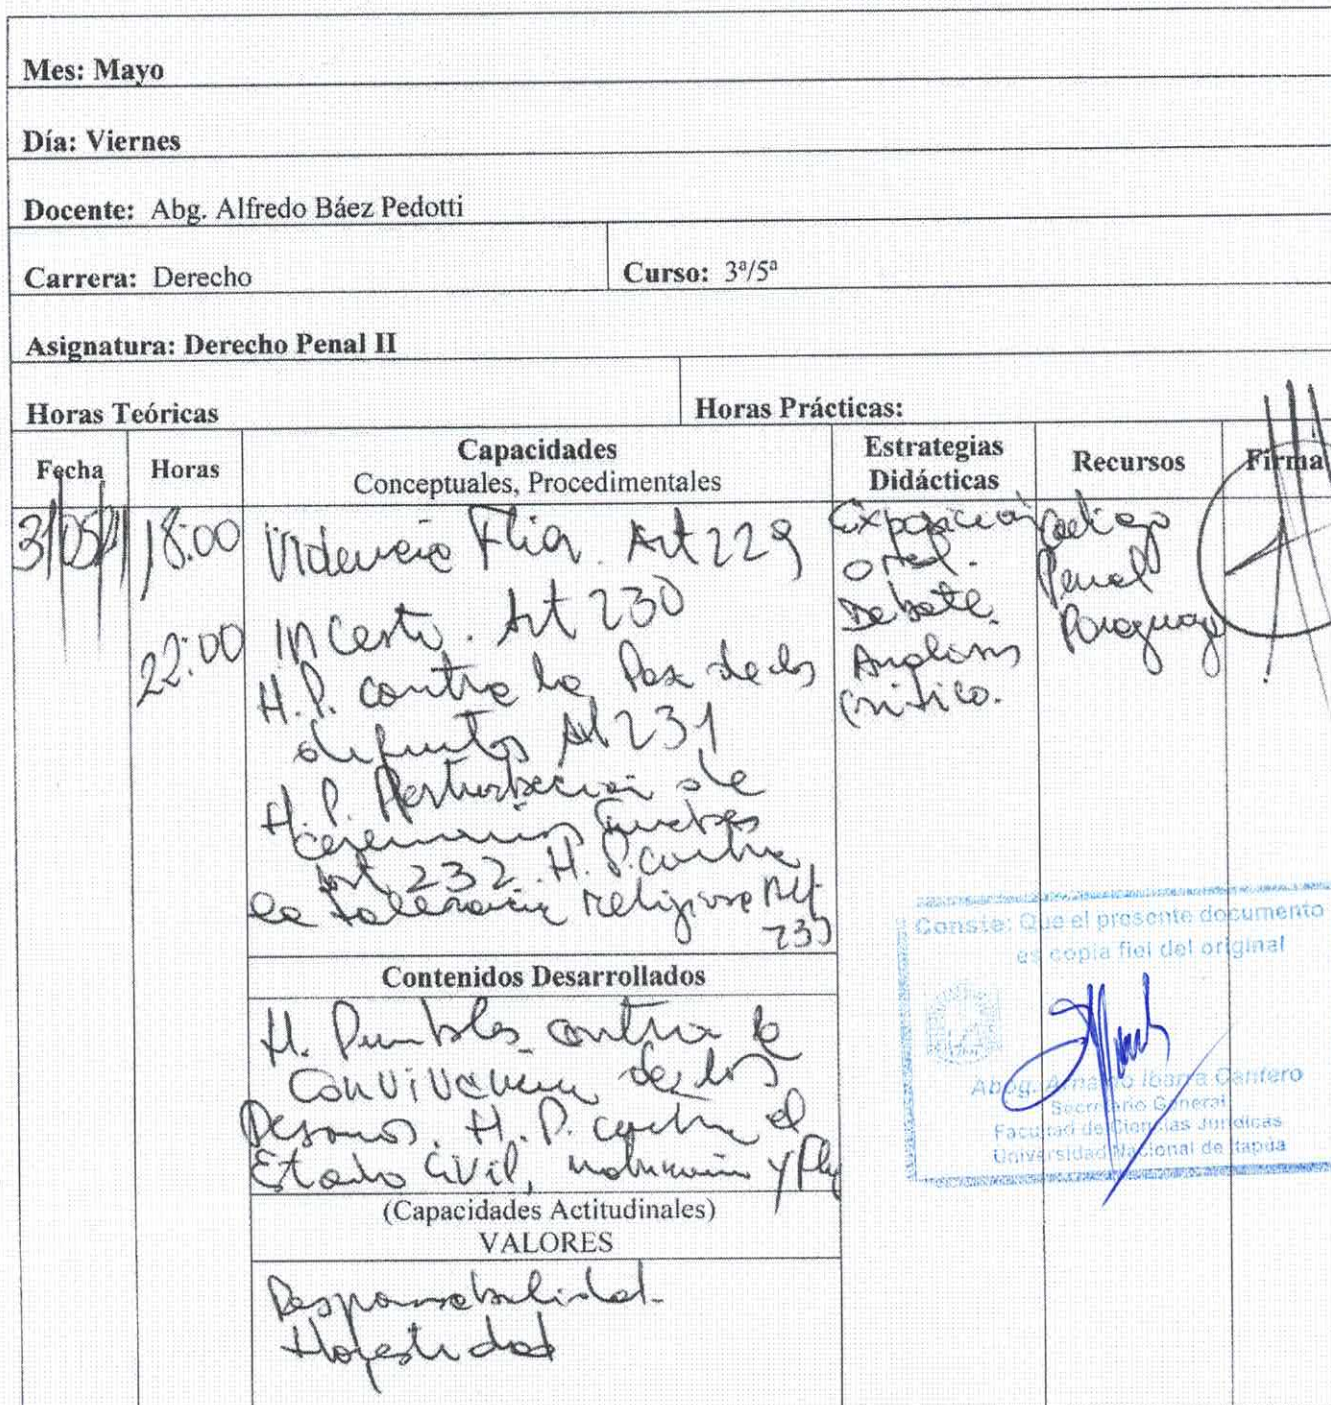 Mes: Mayo
Día: Viernes
Docente: Abg. Alfredo Báez Pedotti
Carrera: Derecho
Curso: 3ª/5ª
Asignatura: Derecho Penal II
Horas Teóricas
Horas Prácticas:
Fecha
Horas
Capacidades
Conceptuales, Procedimentales
Estrategias
Didácticas
Recursos
Firma
31/05/
18:00
22:00
Violencia Flia. Art 229
Incesto. Art 230
H.P. contra la Paz de los
difuntos Art 231
H.P. Perturbación de
ceremonias fúnebres
Art 232. H.P. contra
la tolerancia religiosa Art
233
Exposición
oral.
Debate.
Análisis
crítico.
Código
Penal
Paraguayo
Contenidos Desarrollados
H. Punibles contra la
convivencia de las
personas. H.P. contra el
Estado Civil, matrimonio y Flia
(Capacidades Actitudinales)
VALORES
Responsabilidad-
Honestidad
Conste: Que el presente documento
es copia fiel del original
Abog. Arnaldo Ibarra Cantero
Secretario General
Facultad de Ciencias Jurídicas
Universidad Nacional de Itapúa